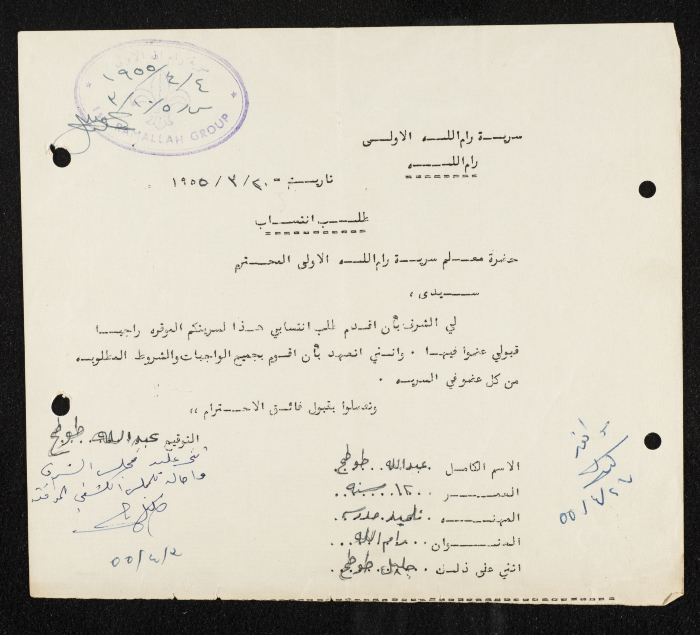 ١٩٥٥/٤/٤
RAMALLAH GROUP
سرية رام الله الاولى
رام الله
تاريخ - ١٩٥٥/٣/٢٠
طلب انتساب
حضرة معلم سرية رام الله الاولى المحترم
سيدى ،
لي الشرف بأن اقدم طلب انتسابي هذا لسريتكم الموقره راجيا
قبولي عضوا فيها . وانني اتعهد بأن اقوم بجميع الواجبات والشروط المطلوبه
من كل عضو في السريه .
وتفضلوا بقبول فائق الاحترام ،،
التوقيع عبد الله طوطح
الاسم الكامل . عبد الله . طوطح .
العمــر . ١٢ . سنه .
المهنــه . تلميذ . مدرسه .
العنــوان . رام الله .
اثني على ذلك . خليل . طوطح .
اثنى عليه مجلس الشرف
واحاله للمجلس الكشفي للموافقة
٥٥/٤/٢
موافق